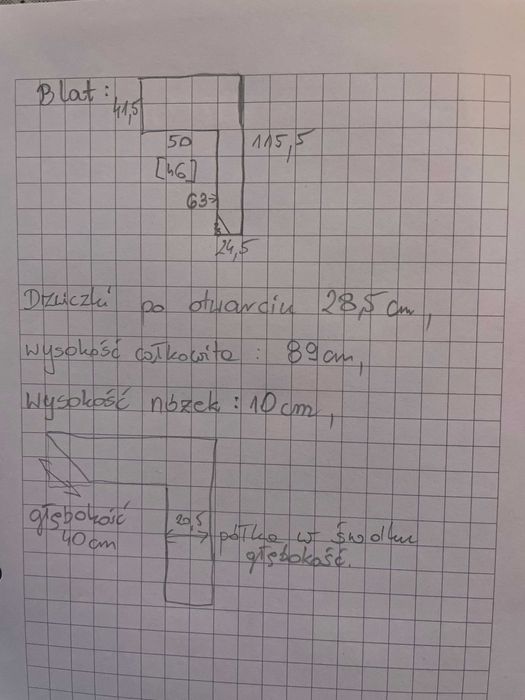 Blat:
41,5
50
115,5
[46]
63
24,5
Drzwiczki po otwarciu 28,5 cm,
wysokość całkowita : 89 cm,
wysokość nózek : 10 cm,
głębokość
40 cm
20,5
półka w środku
głębokość.